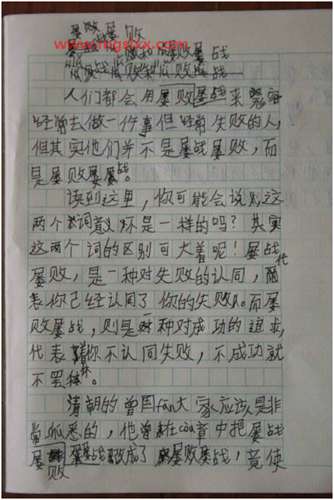 屡败
屡战
屡战 屡败和屡败屡战
人们都会用屡败屡战来形容
经常去做一件事但经常失败的人,
但其实他们并不是屡战屡败,而
是屡败屡战。
读到这里,你可能会说:这
两个词意义不是一样的吗?其实
这两个词的区别可大着呢!屡战
屡败,是一种对失败的认同,代
表你已经认同了你的失败。而屡
败屡战,则是一种对成功的追求,
代表你不认同失败,不成功就
不罢休。
清朝的曾国fan大家应该是非
常熟悉的,他曾在zòu章中把屡战
屡败改成了屡败屡战,竟使